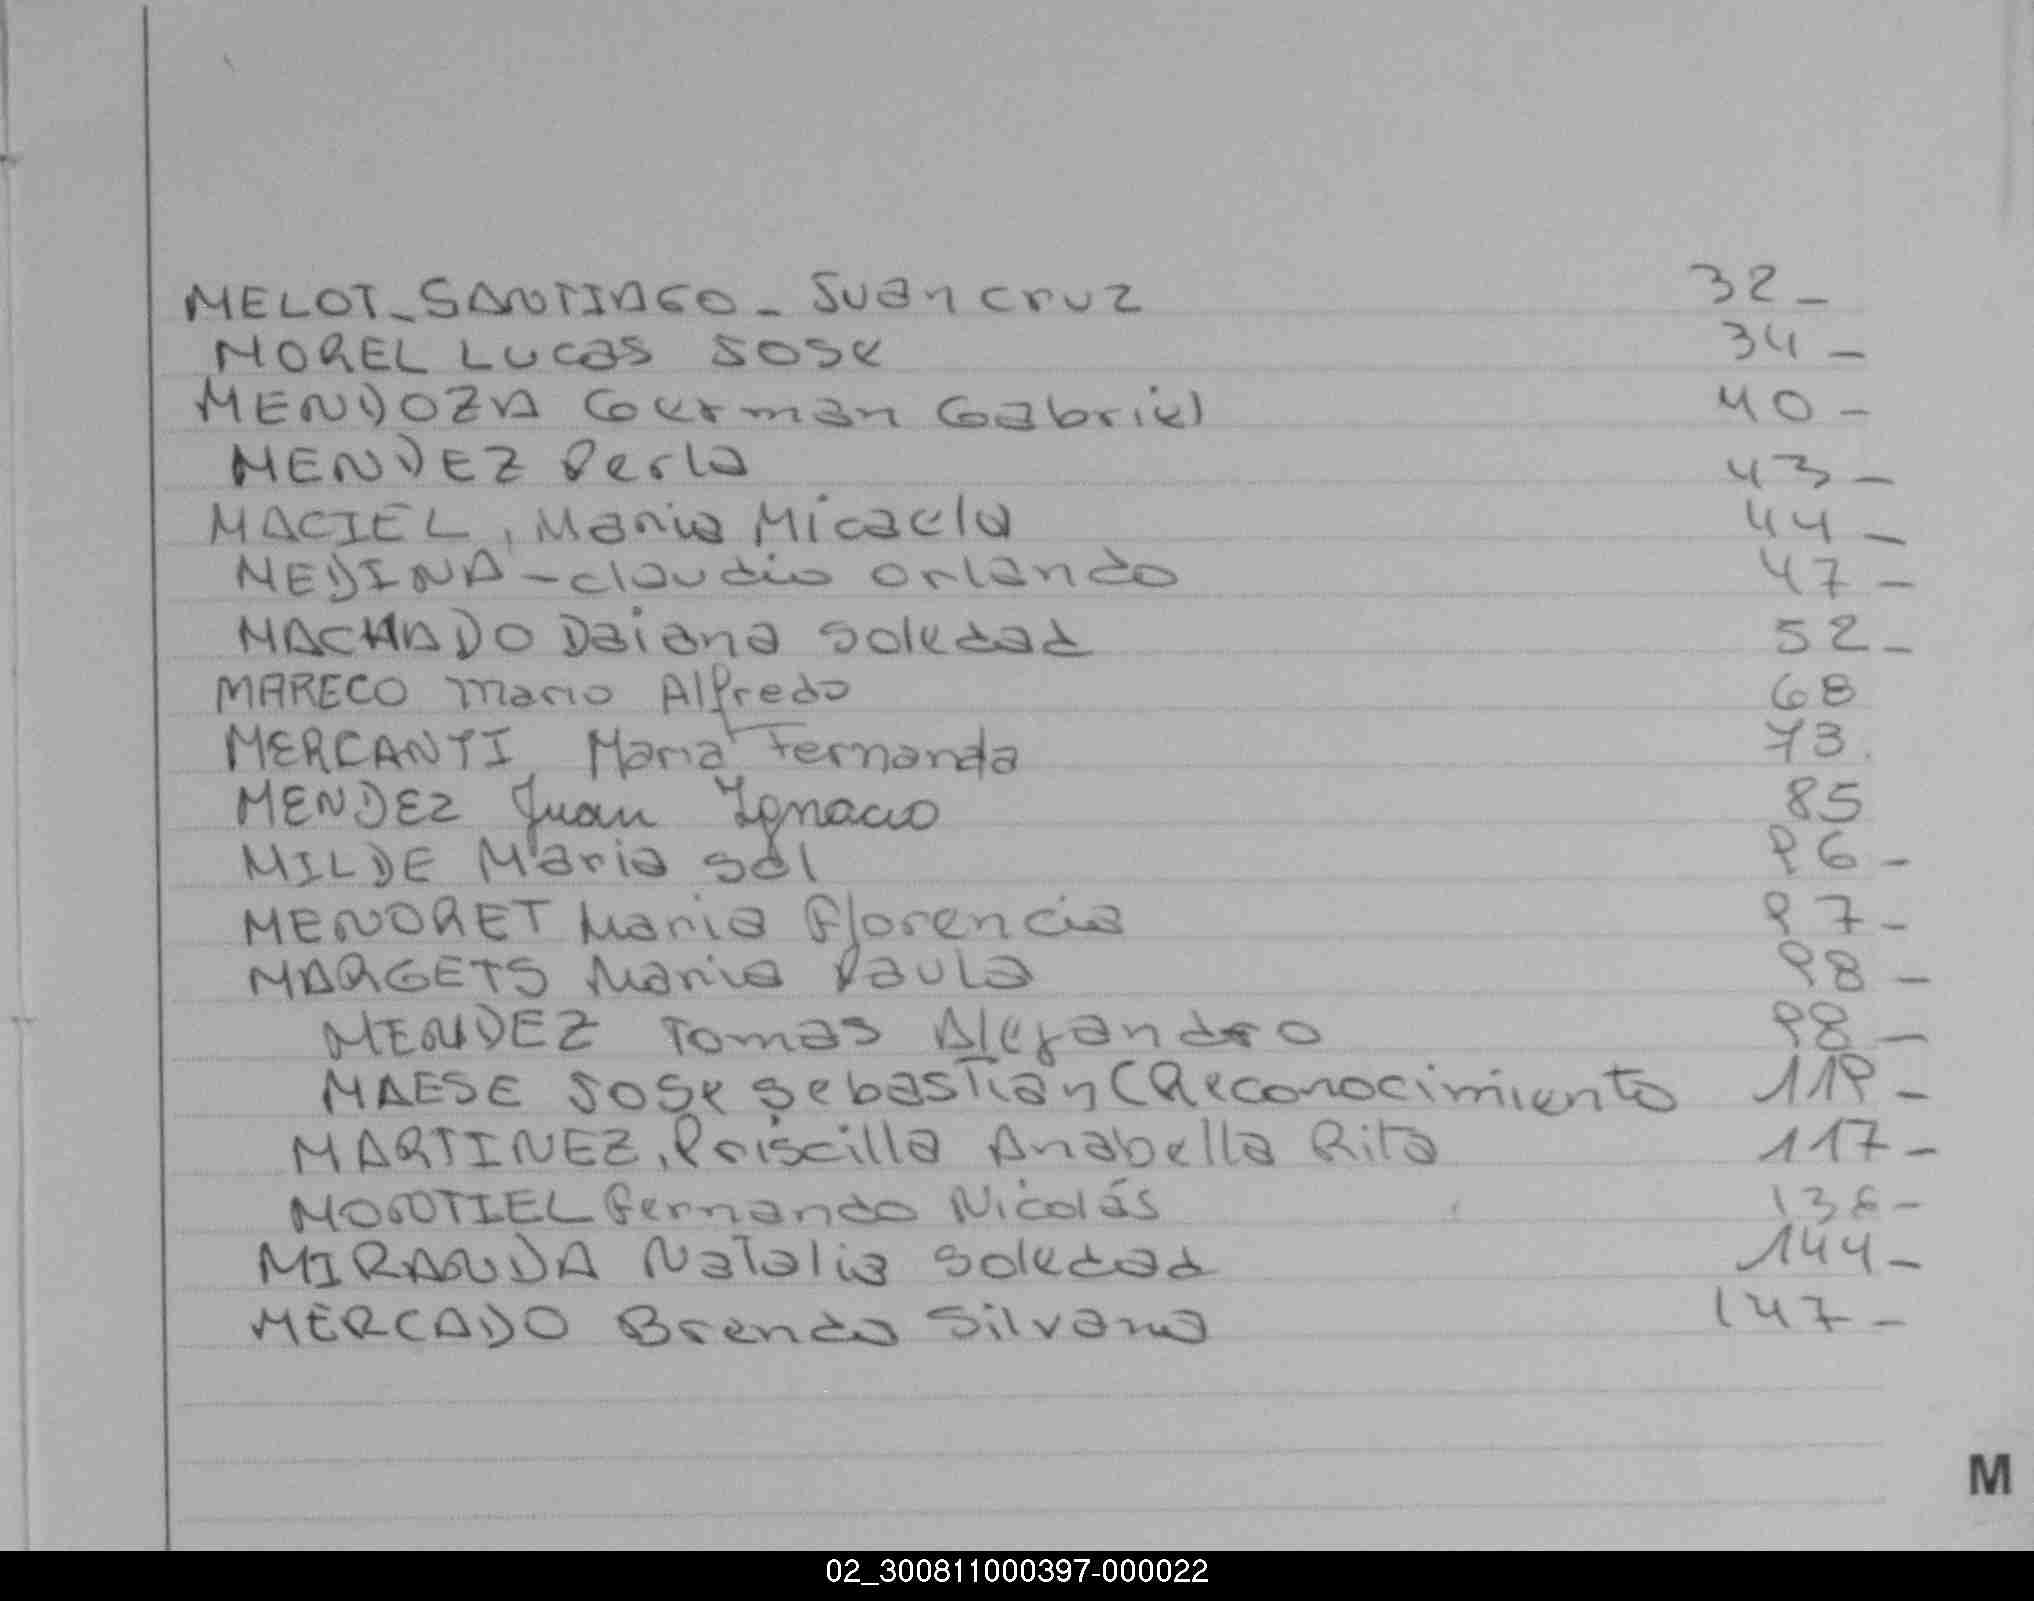 MELOT_SANTIAGO_ Juan cruz 32_
MOREL Lucas Jose 34_
MENDOZA German Gabriel 40-
MENDEZ Perla 43_
MACIEL, Maria Micaela 44_
MEDINA-claudio orlando 47-
MACHADO Daiana Soledad 52_
MARECO mario Alfredo 68
MERCANTI Maria Fernanda 73.
MENDEZ Juan Ignacio 85
MILDE Maria Sol 96-
MENORET Maria Florencia 97-
MARGETS Maria Paula 98-
MENDEZ Tomas Alejandro 98-
MAESE Jose Sebastián (Reconocimiento 119-
MARTINEZ, Priscilla Anabella Rita 117-
MONTIEL Fernando Nicolás
MIRANDA Natalia Soledad 144-
MERCADO Brenda Silvana 147-
M
02_300811000397-000022